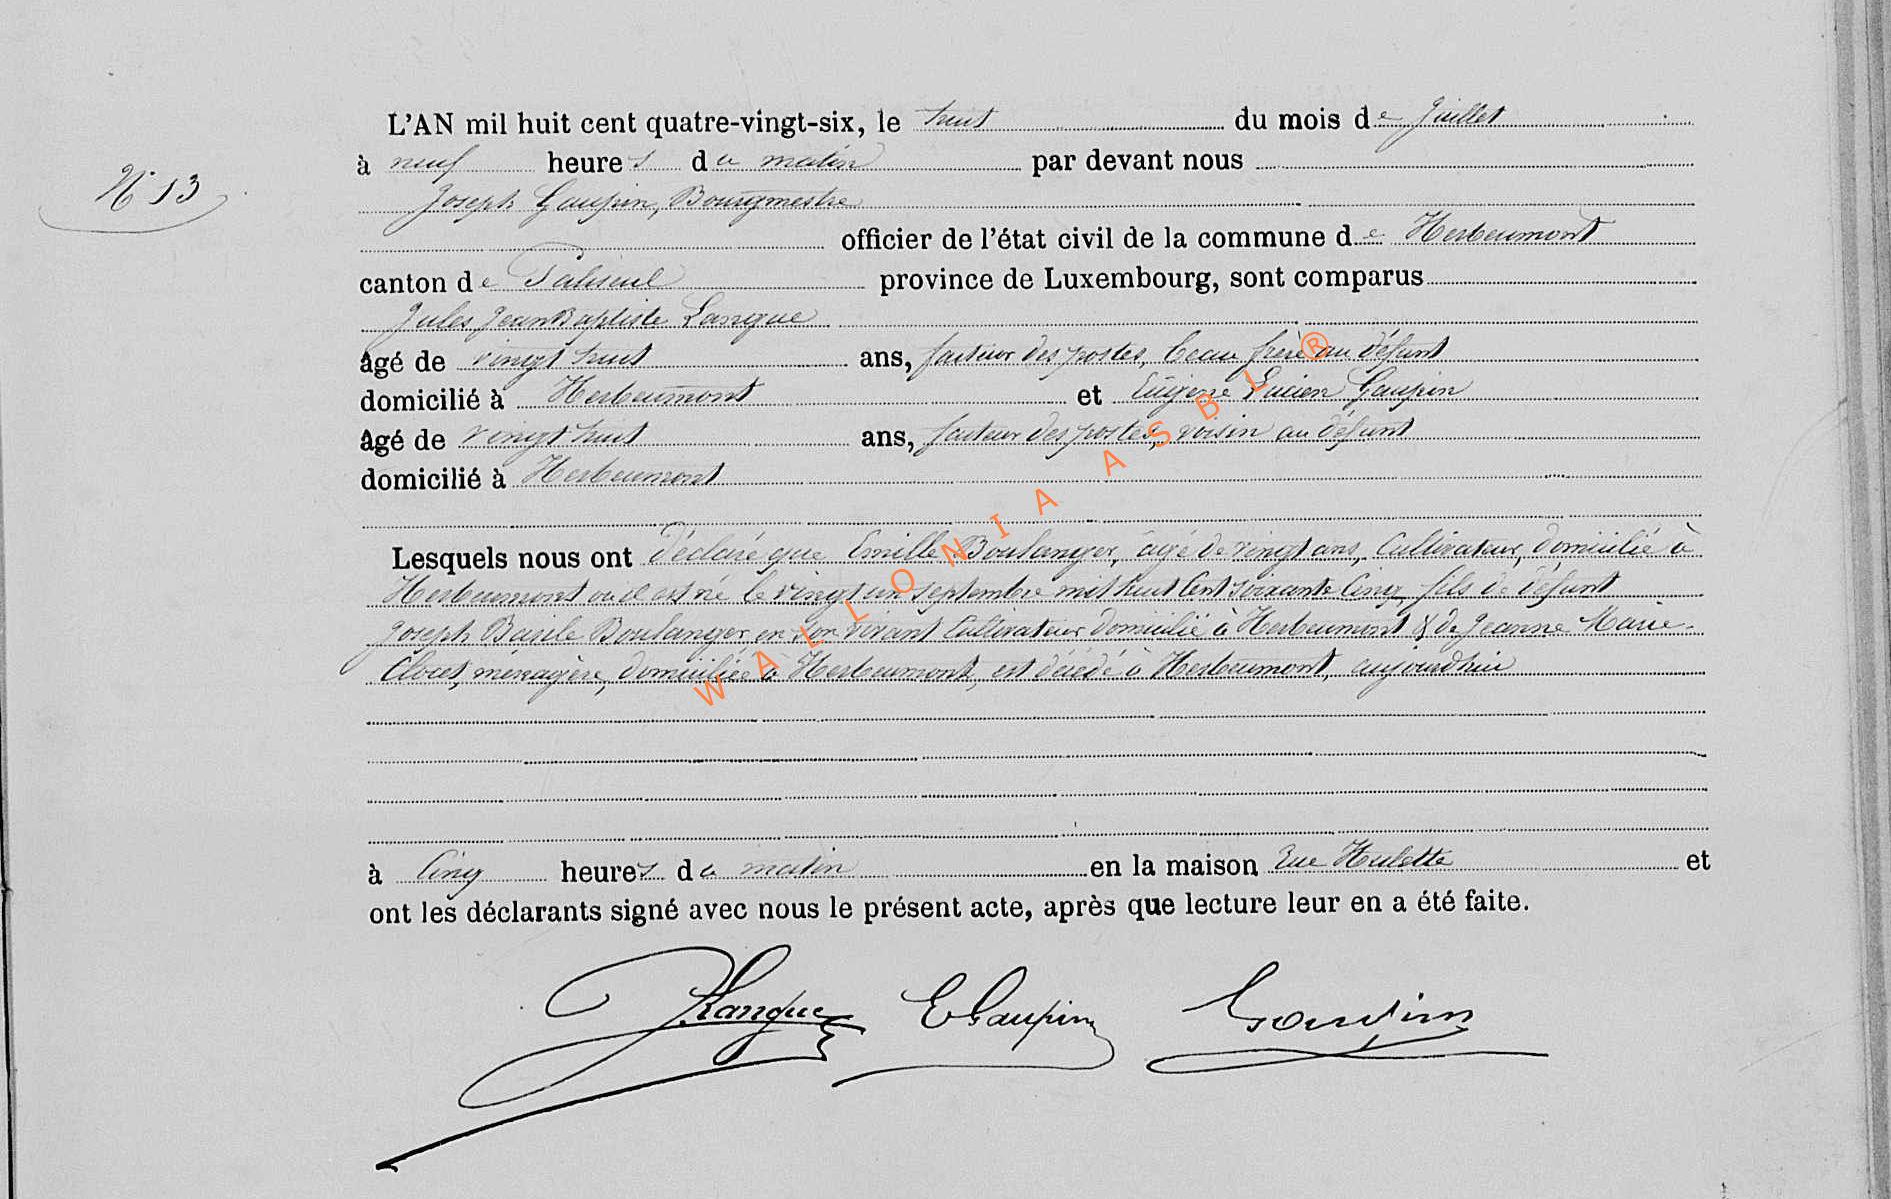 L'AN mil huit cent quatre-vingt-six, le huit du mois de Juillet
N° 13
à neuf heures du matin par devant nous
Joseph Gaupin, Bourgmestre
officier de l'état civil de la commune de Herbeumont
canton de Paliseul province de Luxembourg, sont comparus
Jules Jean Baptiste Langue
âgé de vingt huit ans, facteur des postes, beau frère au défunt
domicilié à Herbeumont et Eugène Lucien Gaupin
âgé de vingt huit ans, facteur des postes, voisin au défunt
domicilié à Herbeumont
Lesquels nous ont déclaré que Emille Boulanger, âgé de vingt ans, Cultivateur, domicilié à
Herbeumont où il est né le vingt un septembre mil huit Cent soixante Cinq, fils de défunt
Joseph Basile Boulanger en son vivant Cultivateur domicilié à Herbeumont & de Jeanne Marie
Closet, ménagère, domiciliée à Herbeumont, est décédé à Herbeumont, aujourd'hui
à Cinq heures du matin en la maison rue Hulette et
ont les déclarants signé avec nous le présent acte, après que lecture leur en a été faite.
JLangue EGaupin Gaupin
WALLONIA ASBL ®